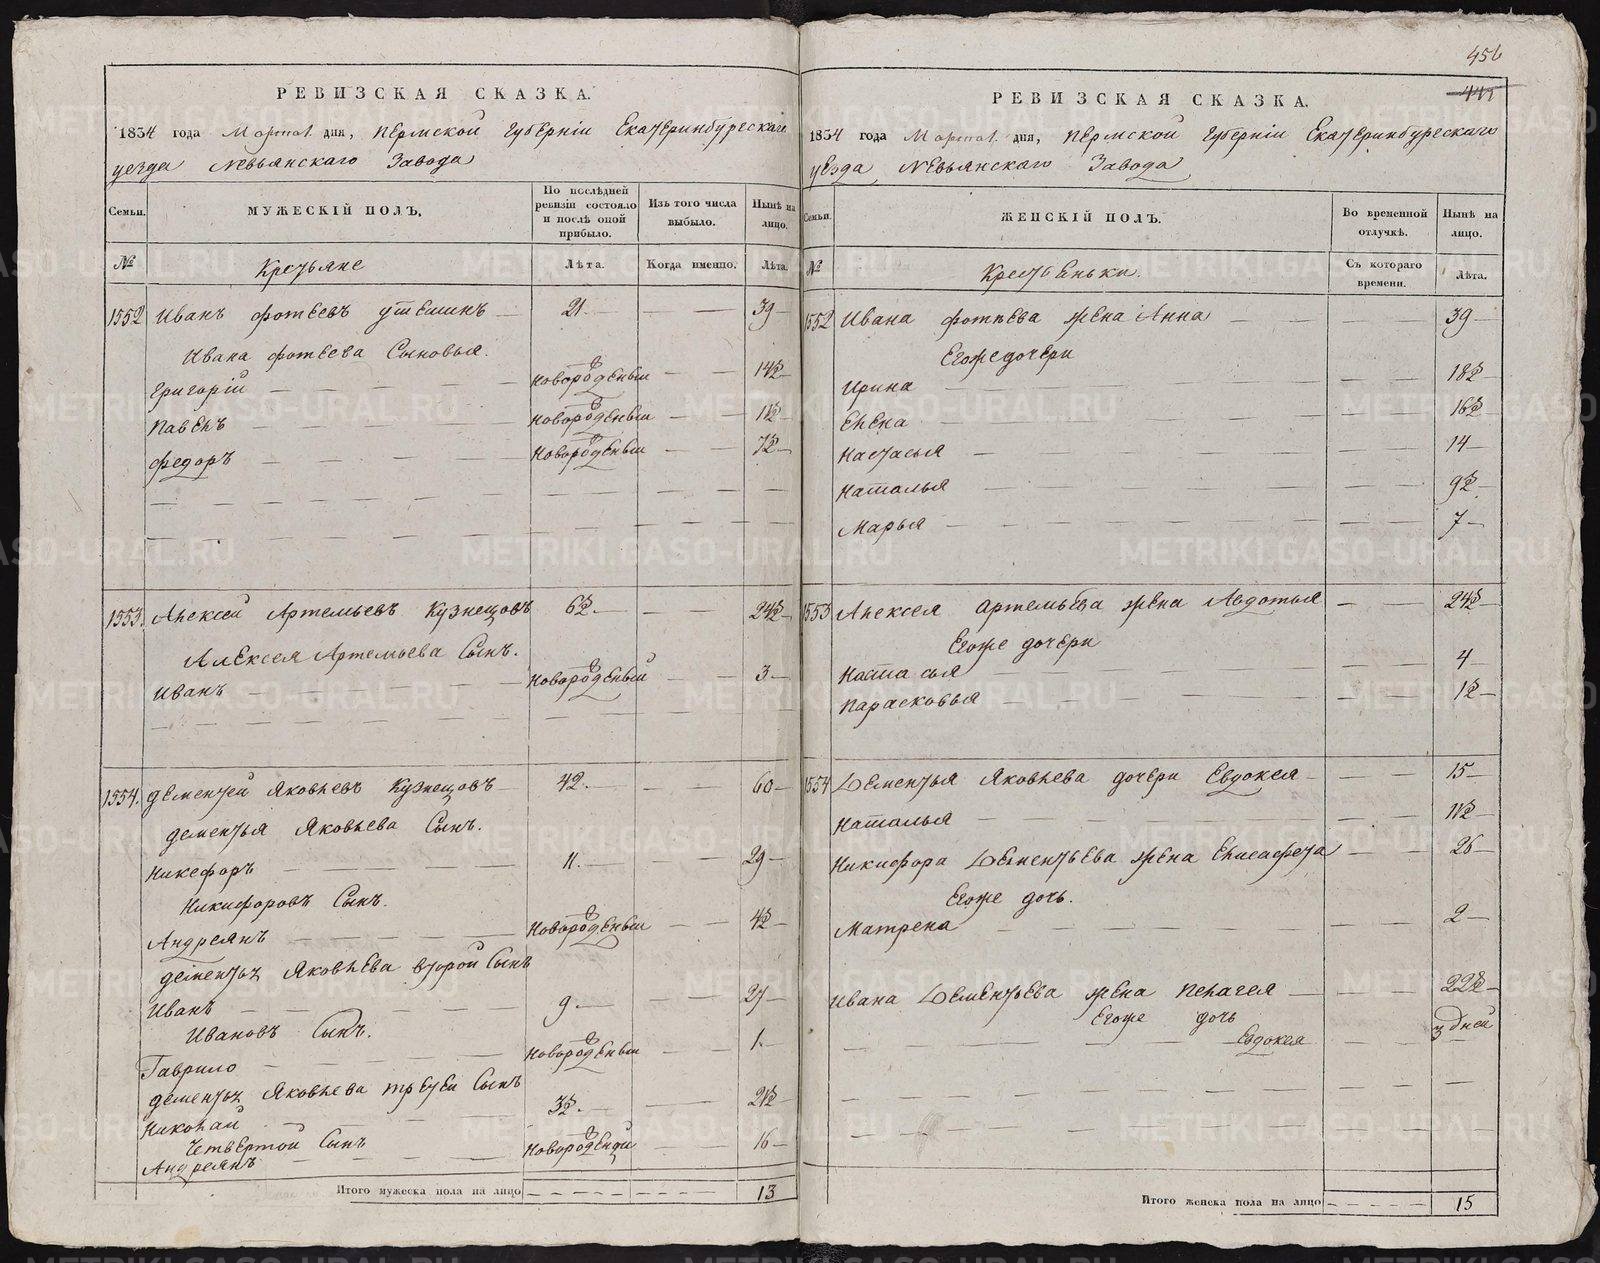 456
445
РЕВИЗСКАЯ СКАЗКА.
1834 года Марта дня, Пермской Губерніи Екатеринбургскаго
уезда Невьянскаго Завода
Семьи. МУЖЕСКІЙ ПОЛЪ. По послѣдней ревизіи состояло и послѣ оной прибыло. Изъ того числа выбыло. Нынѣ на лицо.
№ Крестьяне Лѣта. Когда именно. Лѣта.
1552 Иванъ Фотеевъ Утешинъ 21. 39
Ивана Фотеева Сыновья.
Григорій новорожденый 14½
Павелъ новорожденый 11½
Федоръ новорожденый 7½
1553. Алексей Артемьевъ Кузнецовъ 6½. 24½
Алексея Артемьева Сынъ.
Иванъ новорожденый 3
1554. Дементей Яковлевъ Кузнецовъ 42. 60
Дементья Яковлева Сынъ.
Никефоръ 11. 29
Никифоровъ Сынъ.
Андреянъ новорожденый 4½
Дементья Яковлева второй Сынъ
Иванъ 9. 27
Ивановъ Сынъ.
Гаврило новорожденый 1.
Дементья Яковлева третей Сынъ
Николай 3½. 21½
Четвертой Сынъ
Андреянъ 16
Итого мужеска пола на лицо 13
РЕВИЗСКАЯ СКАЗКА.
1834 года Марта дня, Пермской Губерніи Екатеринбургскаго
уезда Невьянскаго Завода
Семьи. ЖЕНСКІЙ ПОЛЪ. Во временной отлучкѣ. Нынѣ на лицо.
№ Крестьеньки. Съ котораго времени. Лѣта.
1552 Ивана Фотѣева жена Анна 39
Егоже дочери
Ирина 18½
Елена 16½
Настасья 14
Наталья 9½
Марья 7
1553 Алексея Артемьева жена Авдотья 24½
Егоже дочери
Настасья 4
Парасковья 1½
1554 Дементья Яковлева дочери Евдокея 15
Наталья 11½
Никифора Дементьева жена Елисафета 26
Егоже дочь.
Матрена 2
Ивана Дементьева жена Пелагея 22½
Егоже дочь
Евдокея 3 дней
Итого женска пола на лицо 15
METRIKI.GASO-URAL.RU